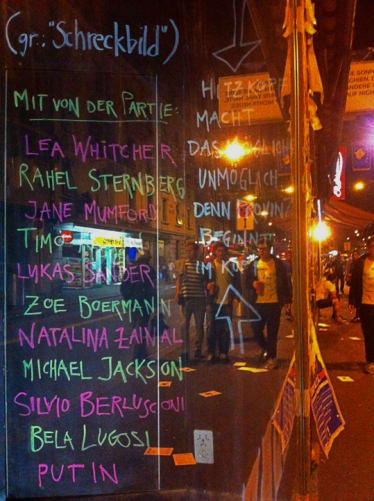 (gr.: "Schreckbild")
MIT VON DER PARTIE:
LEA WHITCHER
RAHEL STERNBERG
JANE MUMFORD
TIMO
LUKAS
ZOE BOERMANN
NATALINA ZAINAL
MICHAEL JACKSON
SILVIO BERLUSCONI
BELA LUGOSI
PUTIN
HITZKOPF
MACHT
DAS MÖGLICHE
UNMÖGLICH
DENN
BEGINNT
IM